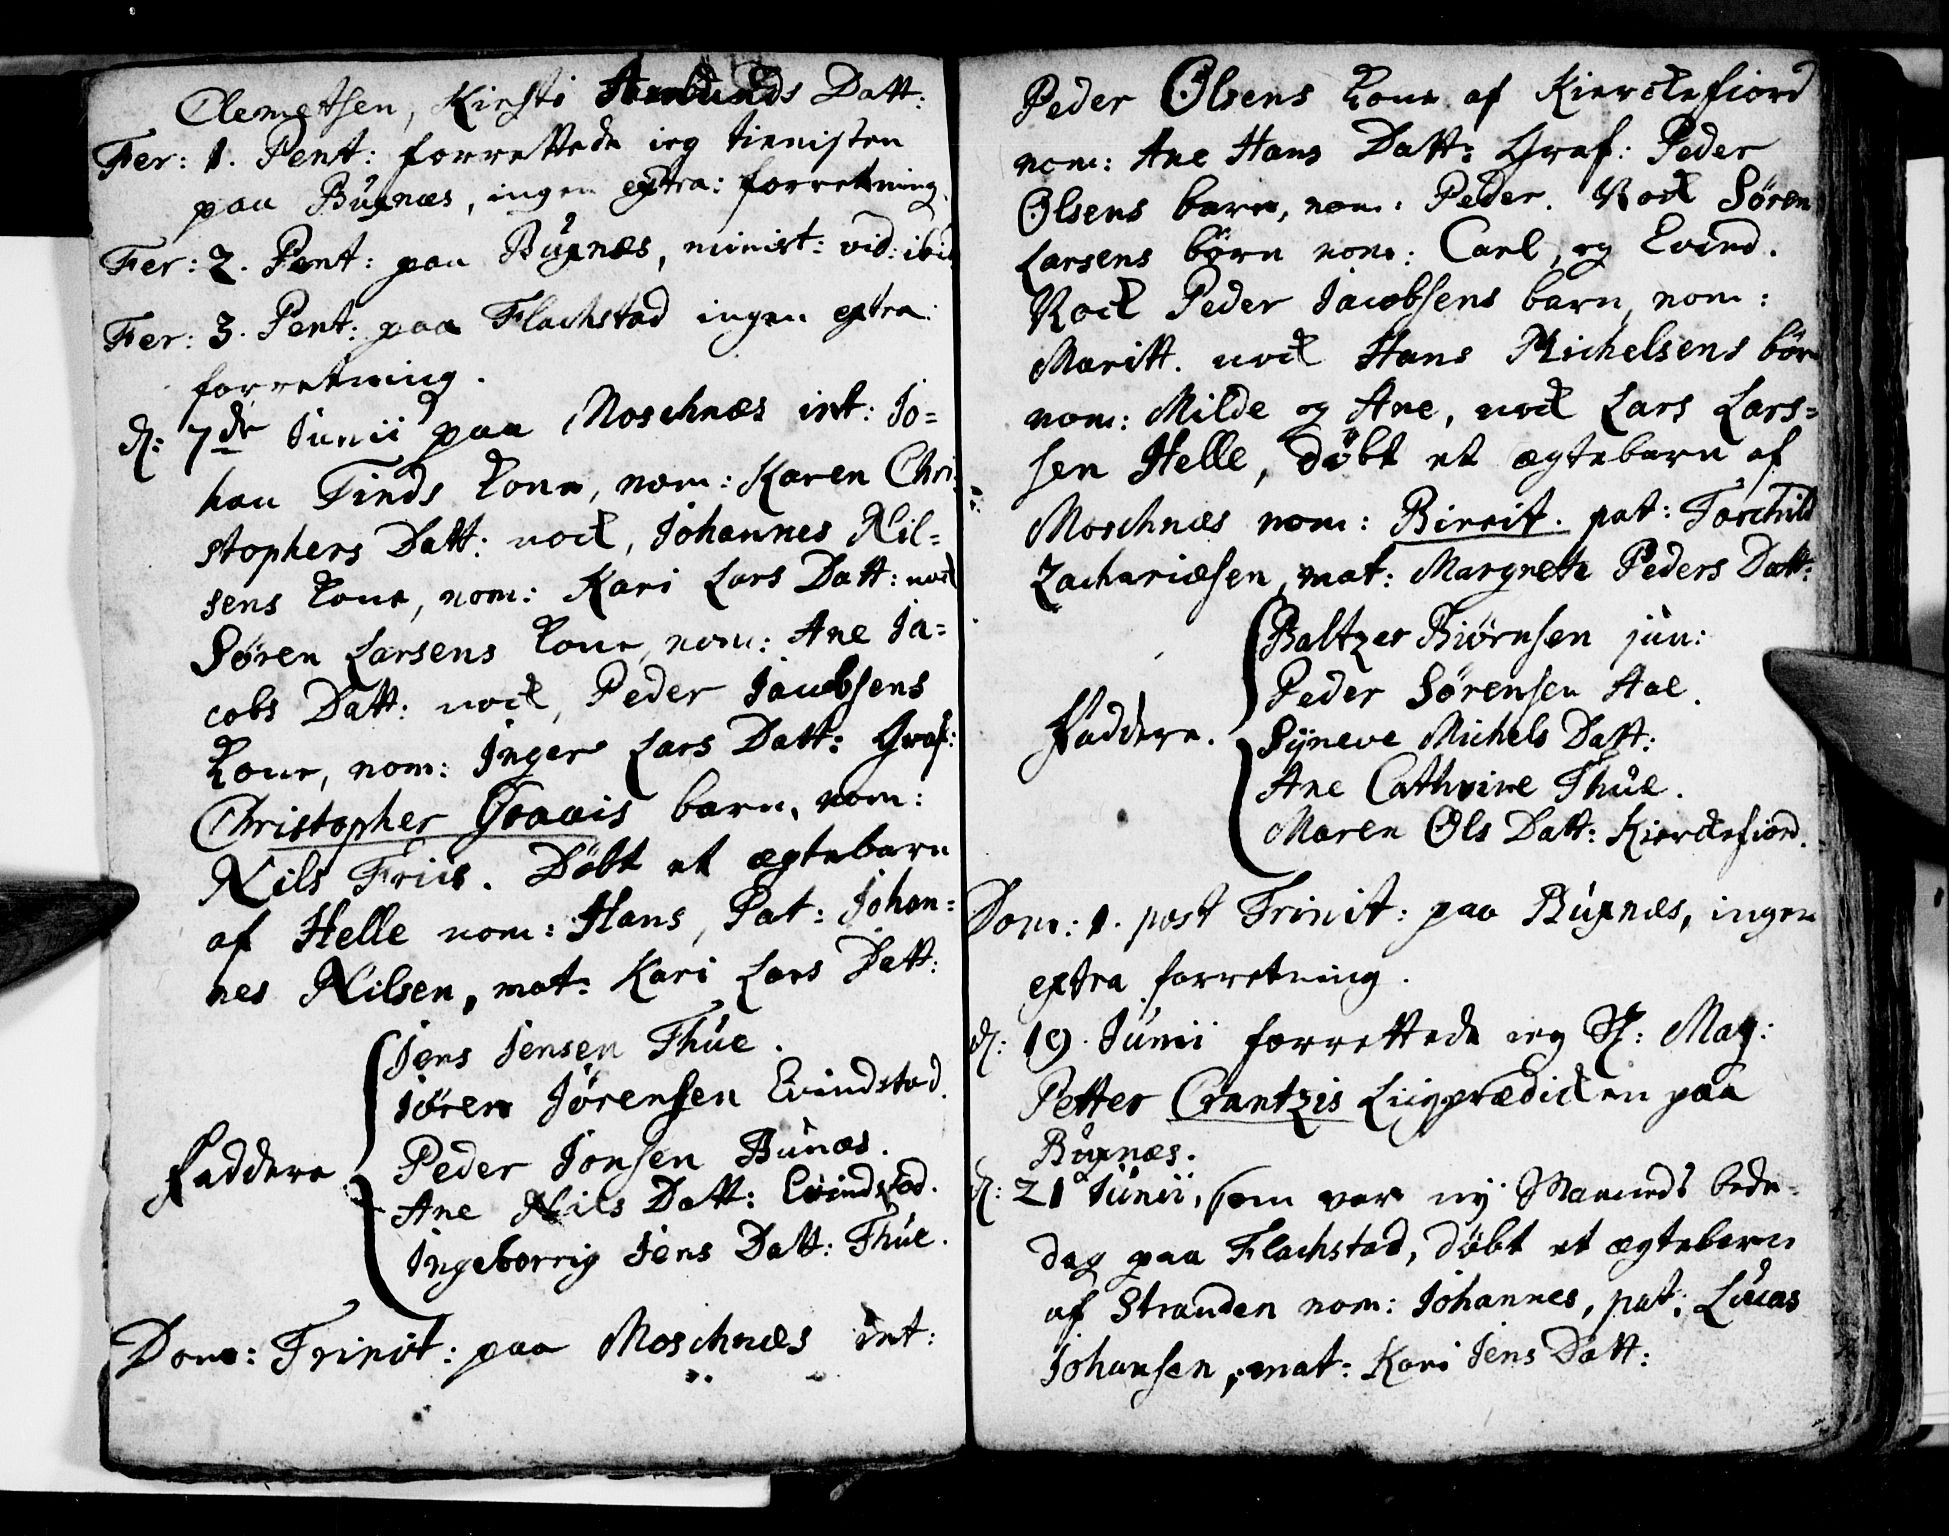 Clemetsen, Kirsti Amunds Datt:
Fer: 1. Pent: forrettede ieg tienisten
paa Buxnæs, ingen extra: forretning.
Fer: 2. Pent: paa Buxnæs, minist: vid: ibid
Fer: 3. Pent: paa Flachstad ingen extra:
forretning.
d: 7de Junii paa Moschnæs int: Jo=
han Finds Kone, nom: Karen Chri=
stophers Datt: nock, Johannes Nil=
sens Kone, nom: Kari Lars Datt: nock
Søren Larsens Kone, nom: Ane Ja=
cobs Datt: nock, Peder Jacobsens
Kone, nom: Inger Lars Datt: Graf:
Christopher Graais barn, nom:
Nils Friis. Døbt et ægtebarn
af Helle nom: Hans, Pat: Johan=
nes Nilsen, mat: Kari Lars Datt:
Jens Jensen Thue.
Jøren Jørensen Evindstad.
Faddere
Peder Jonsen Bunæs.
Ane Nils Datt: Evindstad.
Ingeborrig Jens Datt: Thue.
Dom: Trinit: paa Moschnæs int:
Peder Olsens Kone af Kierckefiord
nom: Ane Hans Datt: Graf: Peder
Olsens barn, nom: Peder. Nock Søren
Larsens børn nom: Carl, og Evind.
Nock Peder Jacobsens barn, nom:
Maritt. nock Hans Michelsens børn
nom: Milde og Ane, nock Lars Lars=
sen Helle, døbt et ægtebarn af
Moschnæs nom: Birrit. pat: Torchild
Zachariæsen, mat: Margrete Peders Datt:
Baltzer Biørnsen jun:
Peder Sørensen Aae.
Faddere.
Syneve Michels Datt:
Ane Cathrine Thue.
Maren Ols Datt: Kierckefiord.
Dom: 1. post Trinit: paa Buxnæs, ingen
extra forretning.
d: 19. Junii forrettede ieg Sl: Mag:
Petter Crantzis Liigprædicken paa
Buxnæs.
d: 21 Junii, som var ny Maaneds bede=
dag paa Flachstad, døbt et ægtebarn
af Stranden nom: Johannes, pat: Lucas
Johansen, mat: Kari Jens Datt: